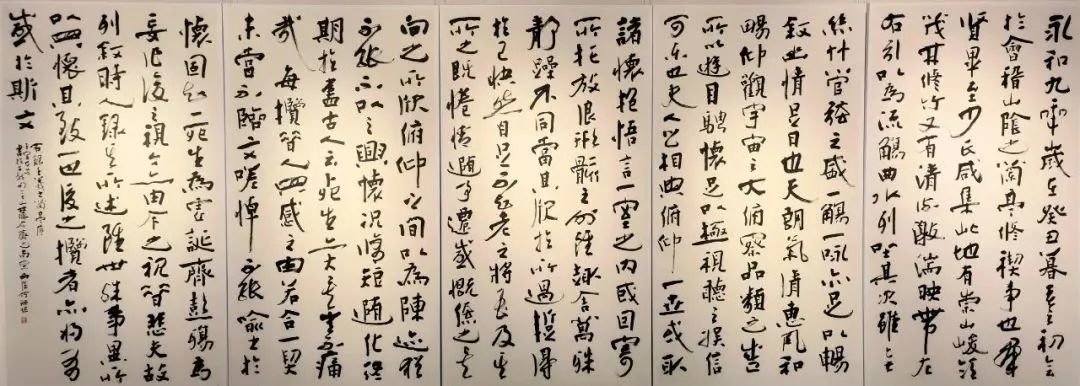 永和九年歲在癸丑暮春之初會
於會稽山陰之蘭亭修禊事也群
賢畢至少長咸集此地有崇山峻領
茂林修竹又有清流激湍映帶左
右引以為流觴曲水列坐其次雖無
絲竹管弦之盛一觴一詠亦足以暢
敘幽情是日也天朗氣清惠風和
暢仰觀宇宙之大俯察品類之盛
所以遊目騁懷足以極視聽之娛信
可樂也夫人之相與俯仰一世或取
諸懷抱悟言一室之內或因寄
所托放浪形骸之外雖趣舍萬殊
靜躁不同當其欣於所遇蹔得
於己快然自足不知老之將至及其
所之既惓情隨事遷感慨係之矣
向之所欣俯仰之間以為陳迹猶
不能不以之興懷況修短隨化終
期於盡古人云死生亦大矣豈不痛
哉每攬昔人興感之由若合一契
未嘗不臨文嗟悼不能喻之於
懷固知一死生為虛誕齊彭殤為
妄作後之視今亦由今之視昔悲夫故
列敘時人錄其所述雖世殊事異所
以興懷其致一也後之攬者亦將有
感於斯文
右錄王羲之蘭亭序